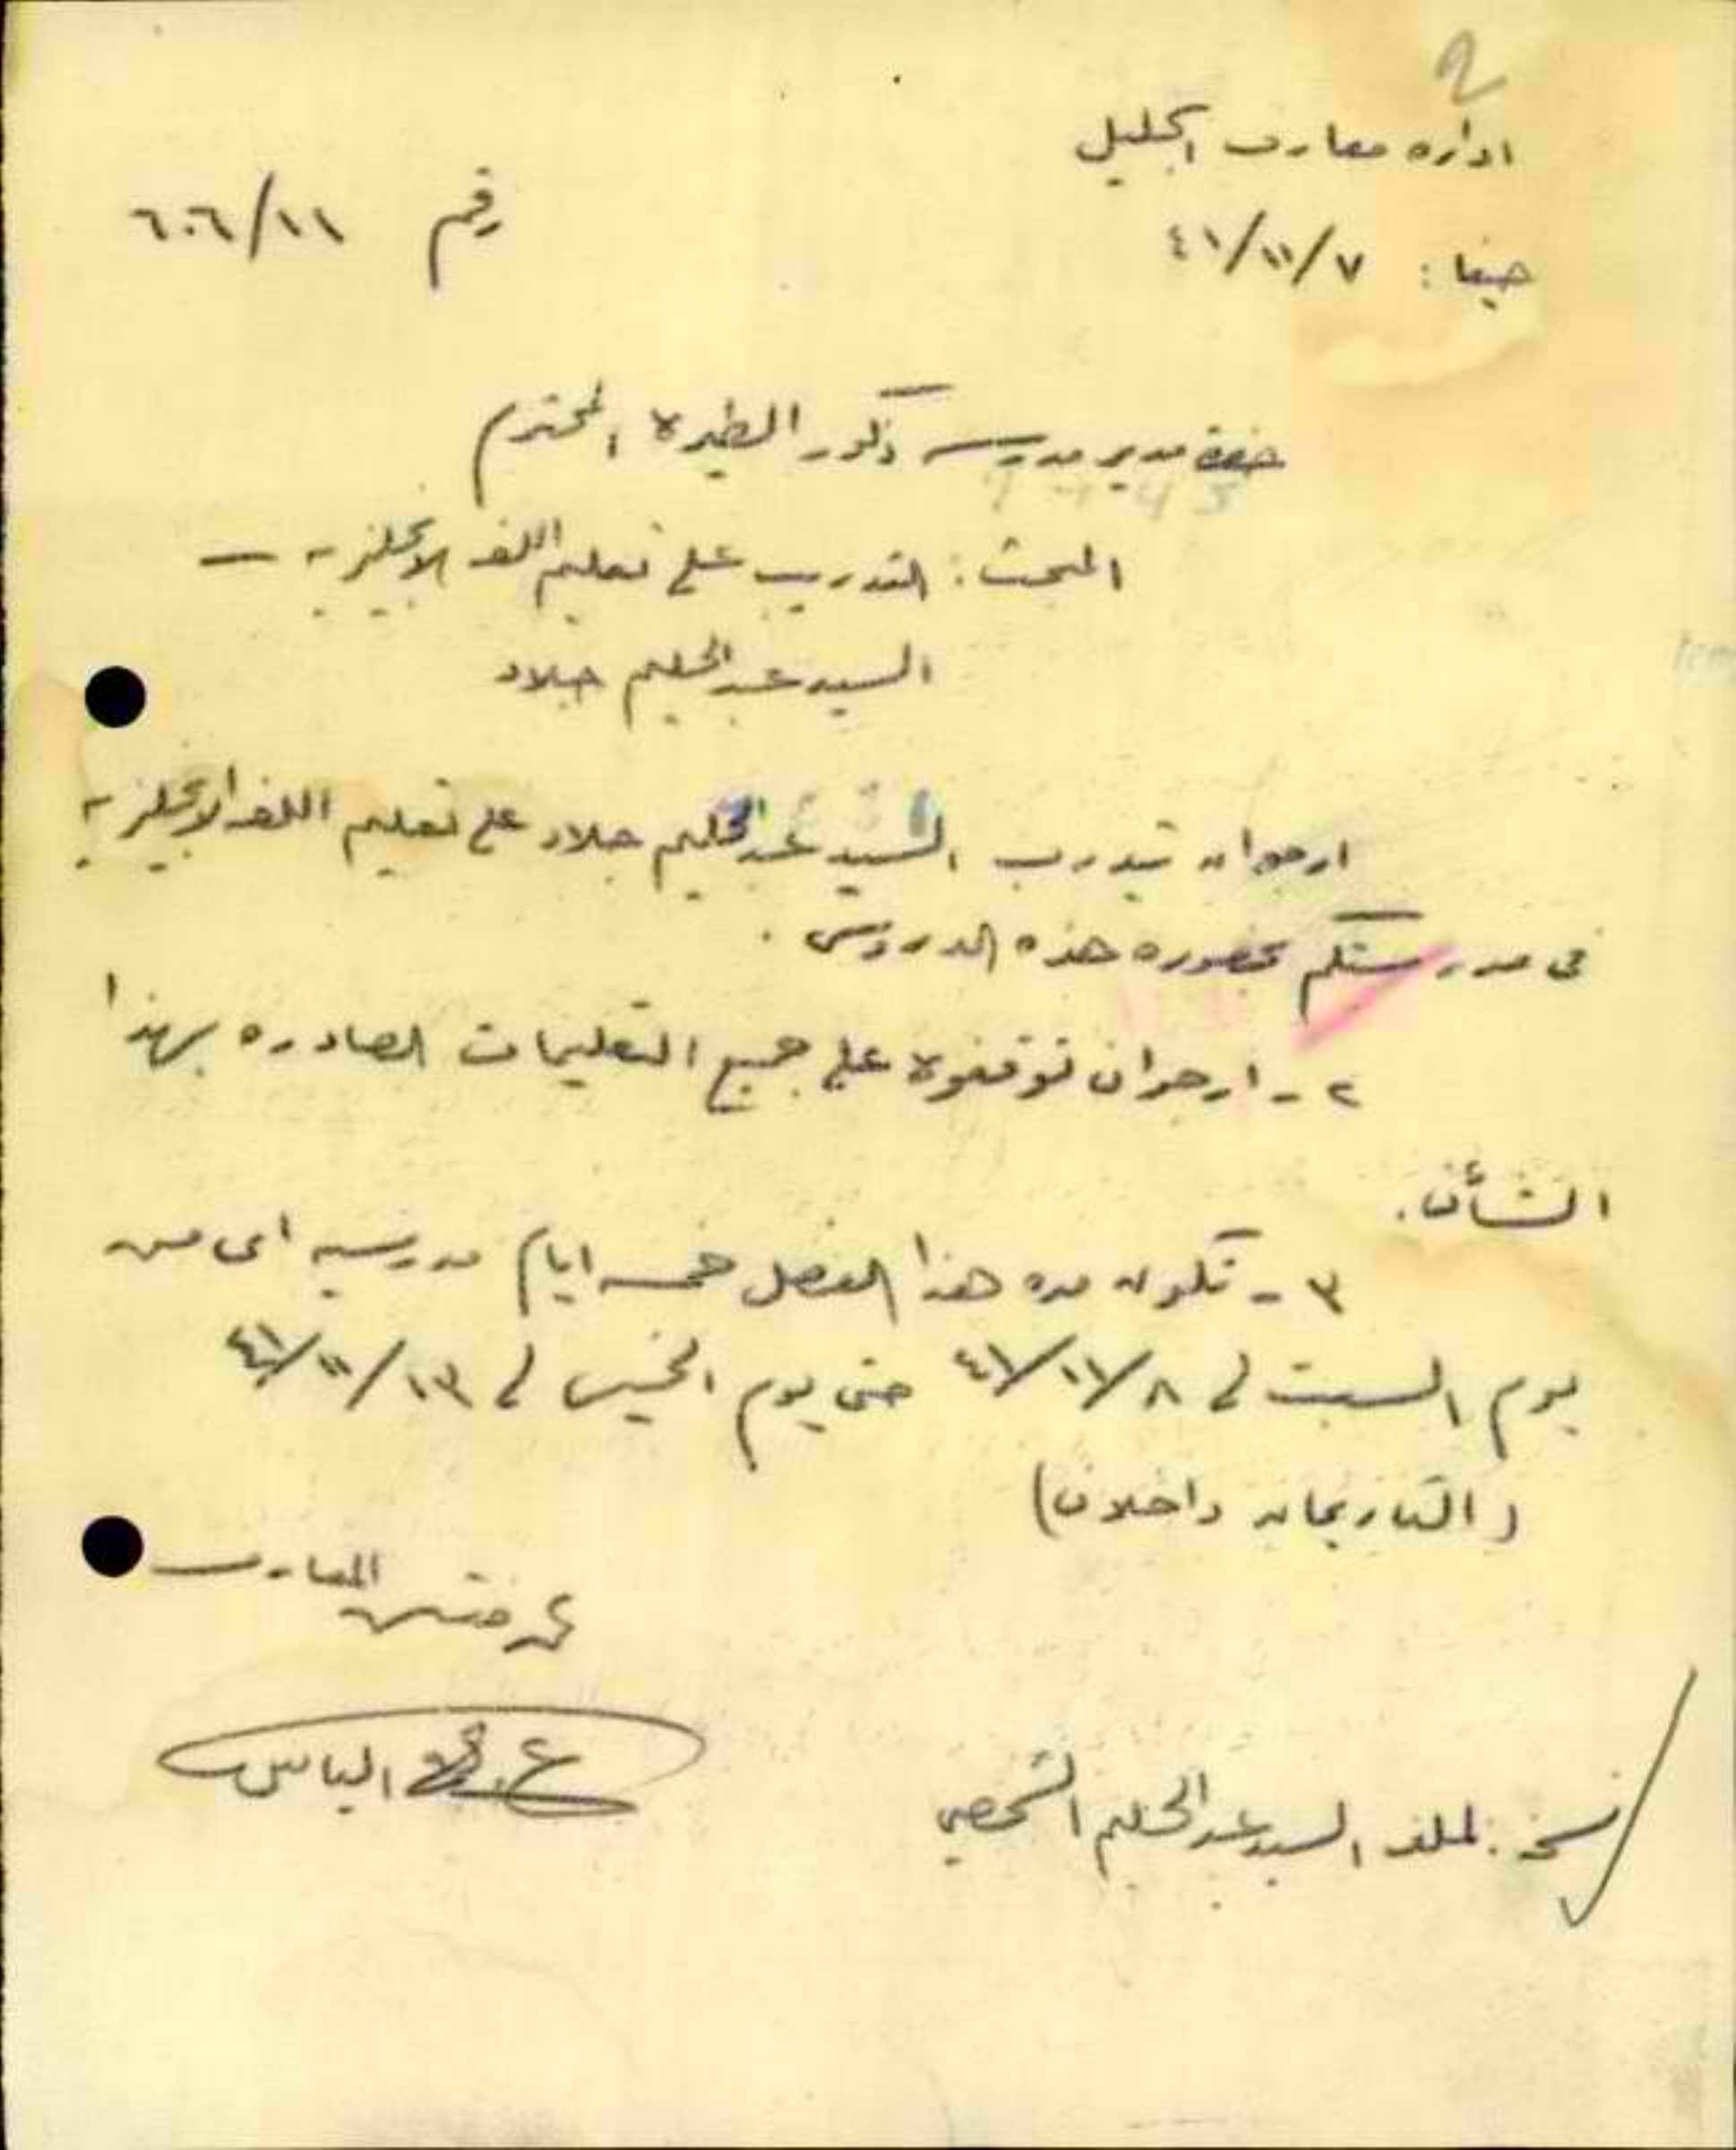 2
اداره معارف الجليل
حيفا : ٤١/١١/٧
رقم ٦٠٦/١١
حضرة مدير مدرسة ذكور الطيرة المحترم
المبحث : التدريب على تعليم اللغه الانجليزيه —
السيد عبد الحليم جلاد
ارجو ان تدرب السيد عبد الحليم جلاد على تعليم اللغه الانجليزيه
فى مدرستكم بحضوره هذه الدروس .
٢ - ارجو ان توقفوه على جميع التعليمات الصادره بهذا
الشأن .
٣ - تكون مده هذا الفصل خمسه ايام مدرسيه اى من
يوم السبت فى ٤١/١١/٨ حتى يوم الخميس فى ٤١/١١/١٣
( التاريخان داخلان )
مفتش المعارف
الياس
نسخه : لملف السيد عبد الحليم الشخصي